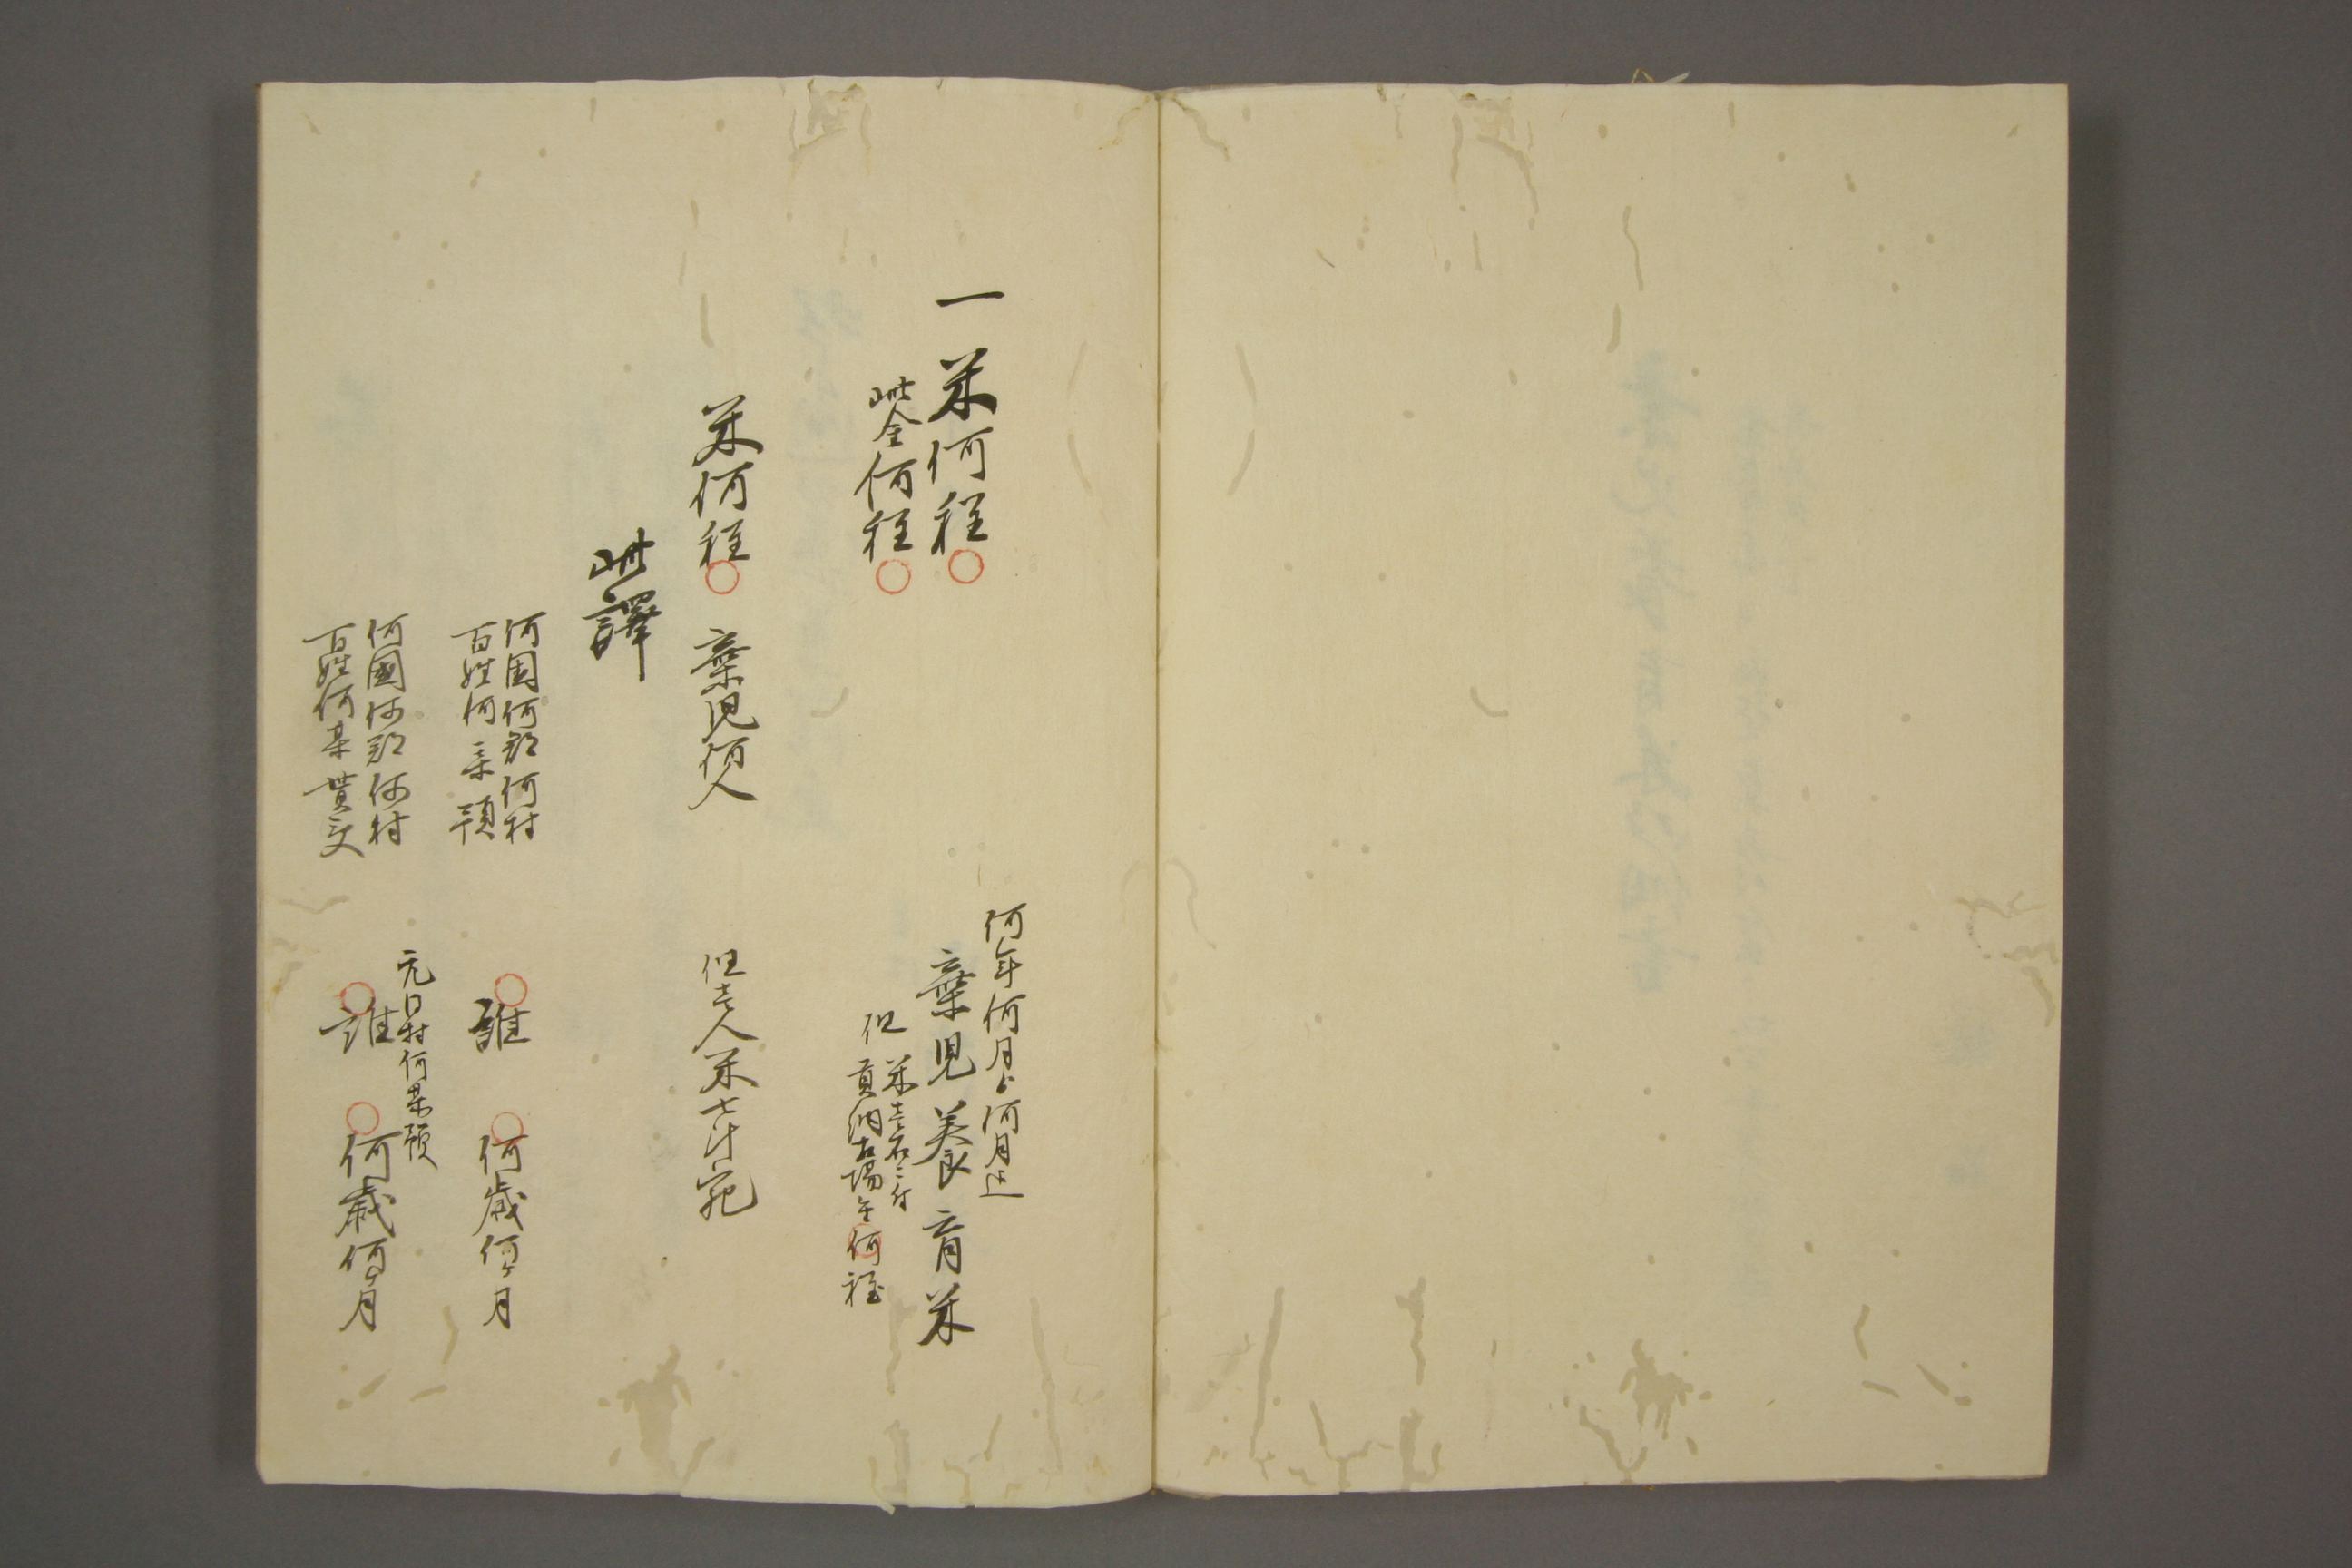 一米何程
此金何程
何年何月ゟ何月迄
棄児養育米
但
米壱石ニ付
貢納石場金何程
米何程
棄児何人
但壱人米七斗宛
此譯
何国何郡何村
百姓何某預
誰
何歳何ヶ月
何國何郡何村
百姓何某貰受
元同村何某預
誰
何歳何ヶ月